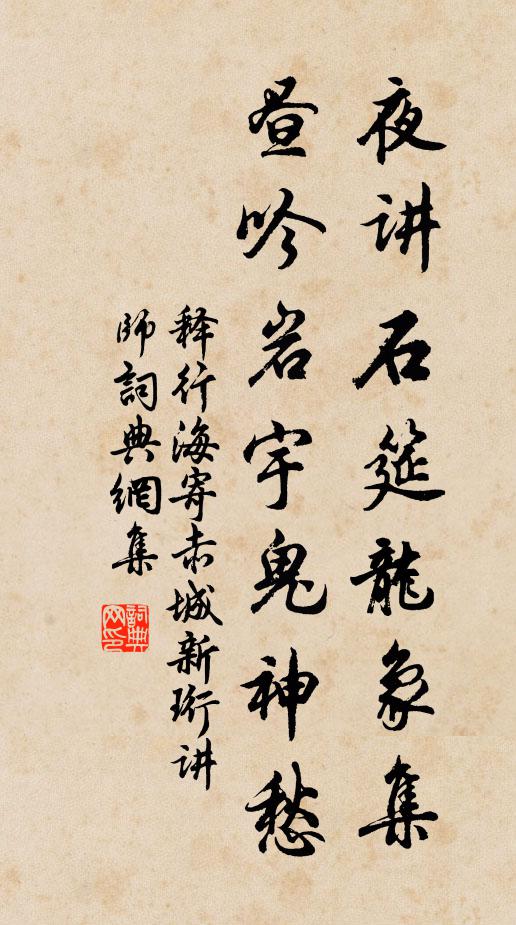 夜讲石筵龍象集
昼吟岩宇鬼神愁
释行海寄赤城新珩讲
师詞典網集
詞典网印